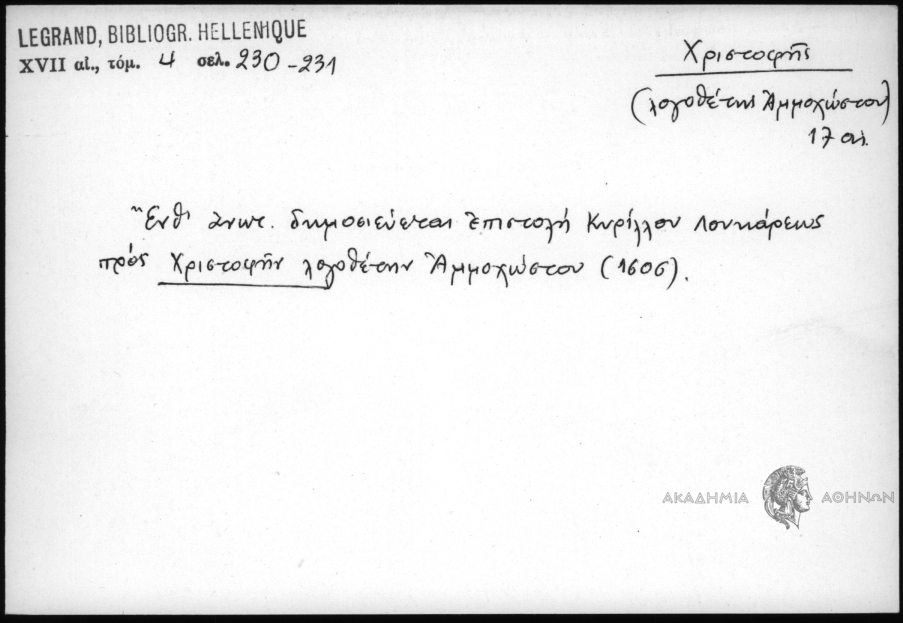 LEGRAND, BIBLIOGR. HELLENIQUE
XVII αἰ., τόμ. 4 σελ. 230-231
Χριστοφῆς
(λογοθέτης Ἀμμοχώστου)
17 αἰ.
Ἔνθ' ἀνωτ. δημοσιεύεται ἐπιστολή Κυρίλλου Λουκάρεως
πρός Χριστοφῆν λογοθέτην Ἀμμοχώστου (1606).
ΑΚΑΔΗΜΙΑ ΑΘΗΝΩΝ